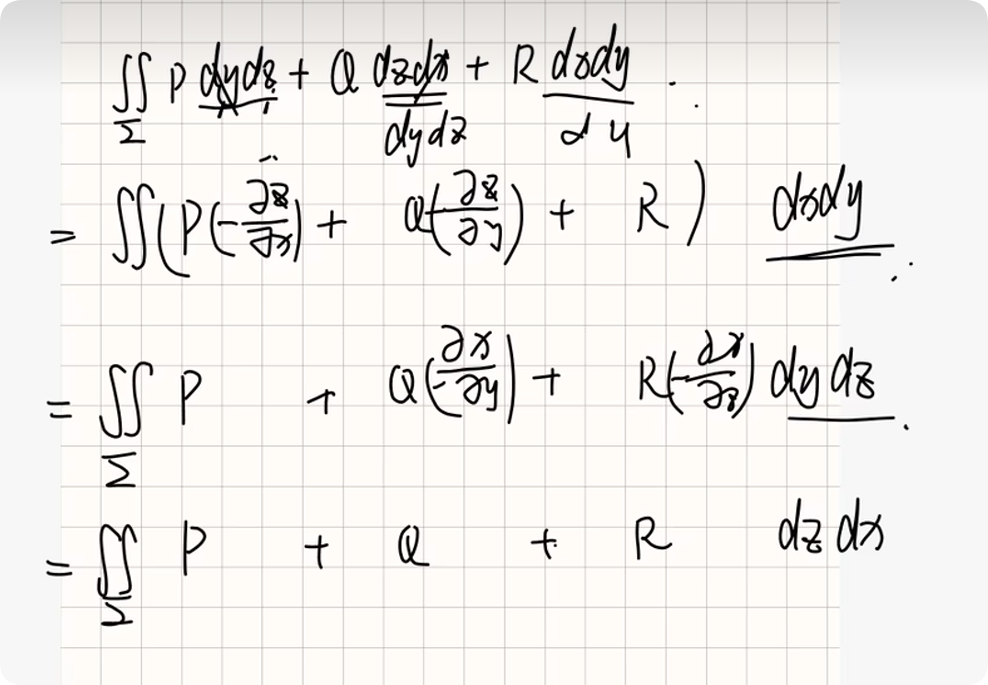 ∬_Σ P dydz + Q dzdx + R dxdy .
dydz
= ∬(P(-∂z/∂x) + Q(-∂z/∂y) + R) dxdy
= ∬_Σ P + Q(-∂x/∂y) + R(-∂x/∂z) dydz .
= ∬_Σ P + Q + R dz dx